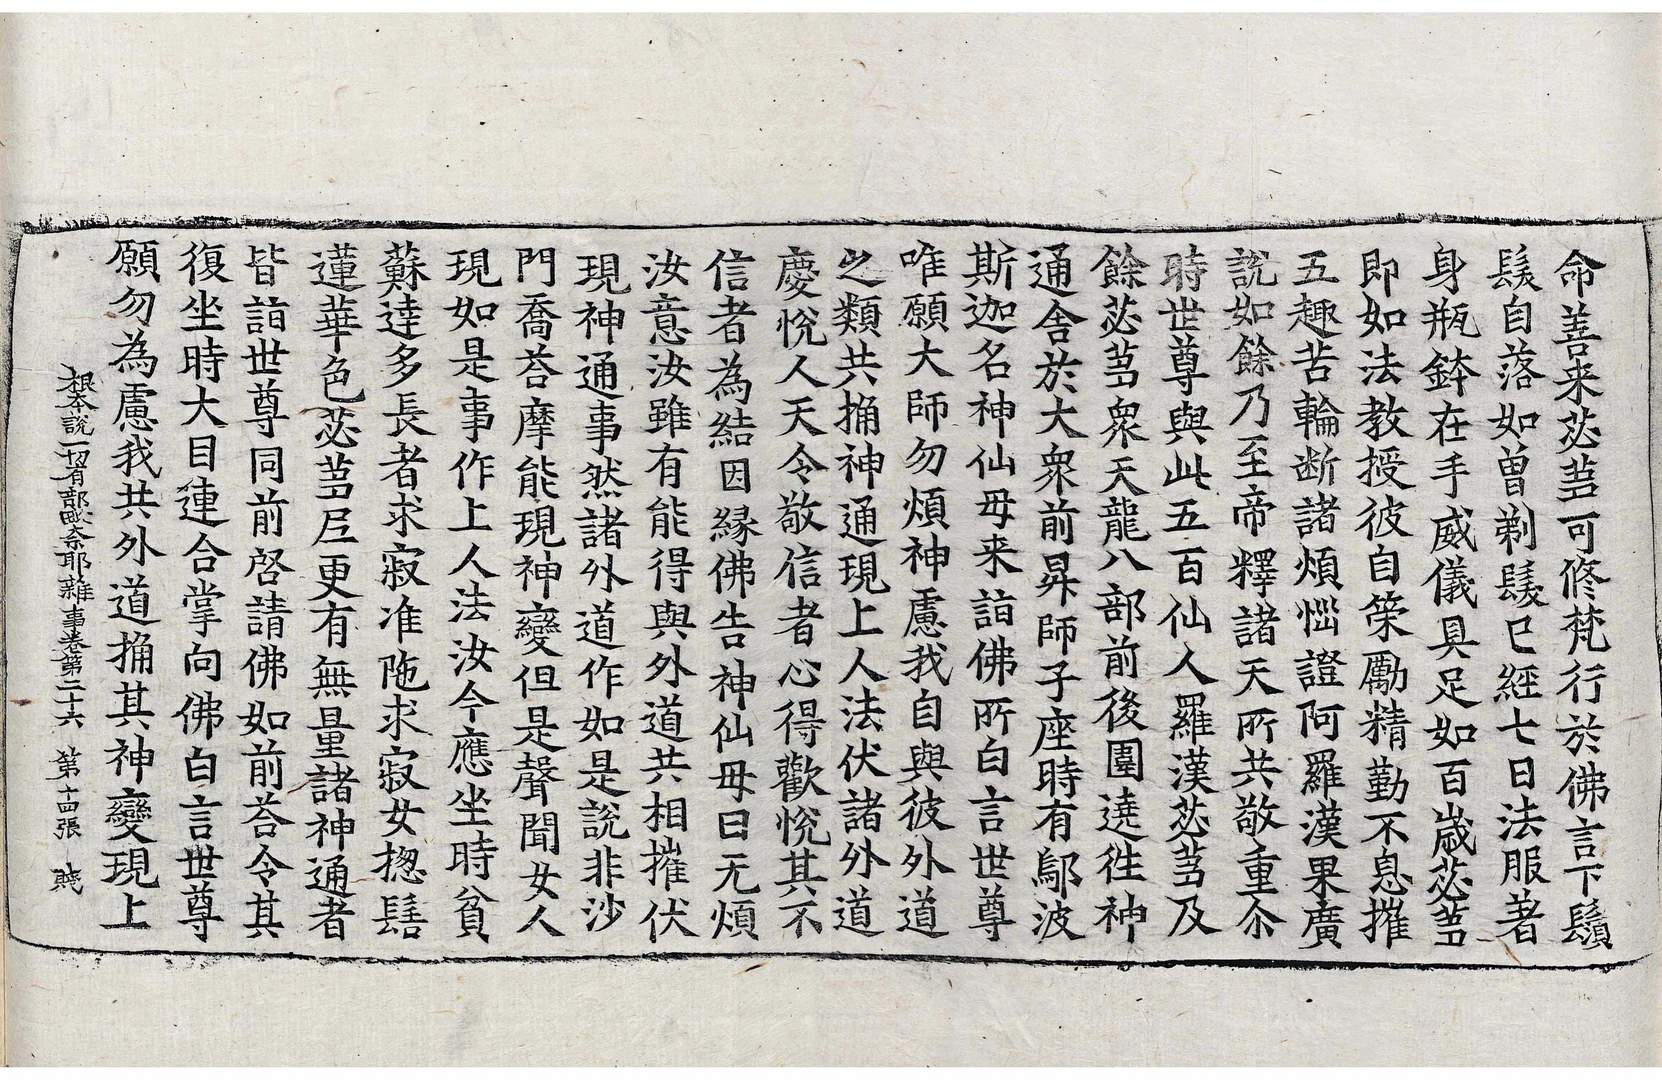 命善来苾蒭可修梵行於佛言下鬚
髮自落如曾剃髮已經七日法服著
身瓶鉢在手威儀具足如百歲苾蒭
即如法教授彼自策勵精勤不息摧
五趣苦輪断諸煩惱證阿羅漢果廣
說如餘乃至帝釋諸天所共敬重尒
時世尊與此五百仙人羅漢苾蒭及
餘苾蒭衆天龍八部前後圍遶徃神
通舎於大衆前昇師子座時有鄔波
斯迦名神仙毋来詣佛所白言世尊
唯願大師勿煩神慮我自與彼外道
之類共捔神通現上人法伏諸外道
慶悅人天令敬信者心得歡悅其不
信者為結因緣佛告神仙毋曰无煩
汝意汝雖有能得與外道共相摧伏
現神通事然諸外道作如是說非沙
門喬荅摩能現神變但是聲聞女人
現如是事作上人法汝今應坐時貧
蘇達多長者求寂准陁求寂女揔髻
蓮華色苾蒭尼更有無量諸神通者
皆詣世尊同前啓請佛如前荅令其
復坐時大目連合掌向佛白言世尊
願勿為慮我共外道捔其神變現上
根本說一切有部毗奈耶雜事卷第二十六 第十四張 賤